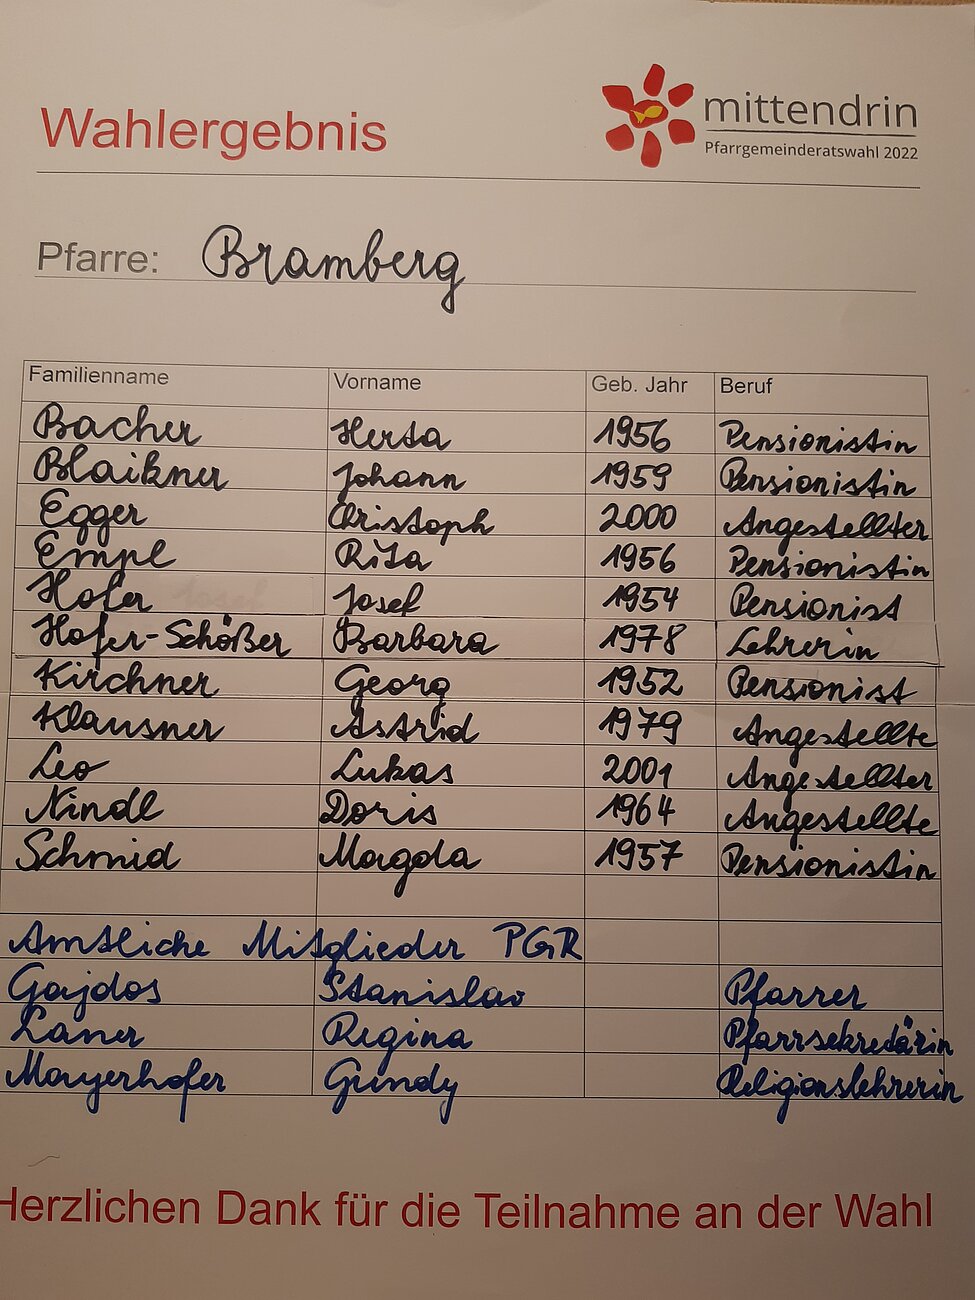 Wahlergebnis
mittendrin
Pfarrgemeinderatswahl 2022
Pfarre: Bramberg
Familienname Vorname Geb. Jahr Beruf
Bacher Herta 1956 Pensionistin
Blaikner Johann 1959 Pensionistin
Egger Christoph 2000 Angestellter
Empl Rita 1956 Pensionistin
Hofer Josef 1954 Pensionist
Hofer-Schößer Barbara 1978 Lehrerin
Kirchner Georg 1952 Pensionist
Klausner Astrid 1979 Angestellte
Leo Lukas 2001 Angestellter
Nindl Doris 1964 Angestellte
Schmid Magda 1957 Pensionistin
Amtliche Mitglieder PGR
Gajdos Stanislav Pfarrer
Laner Regina Pfarrsekretärin
Mayerhofer Gundy Religionslehrerin
Herzlichen Dank für die Teilnahme an der Wahl